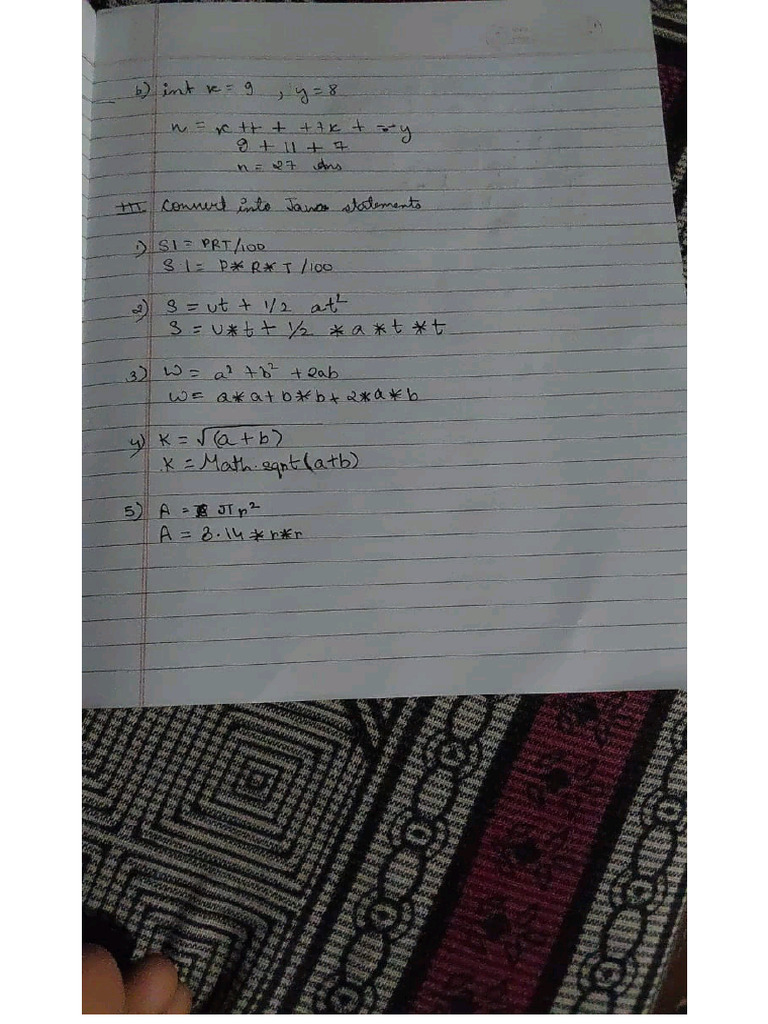 b) int x = 9 , y = 8
n = x ++ + ++x + --y
9 + 11 + 7
n = 27 Ans
III Convert into Java statements
1) SI = PRT/100
SI = P* R* T /100
2) S = ut + 1/2 at²
S = u*t + 1/2 *a *t *t
3) W = a² + b² + 2ab
W = a* a + b *b + 2*a*b
4) K = √(a+b)
K = Math.sqrt(a+b)
5) A = πr²
A = 3.14 *r*r